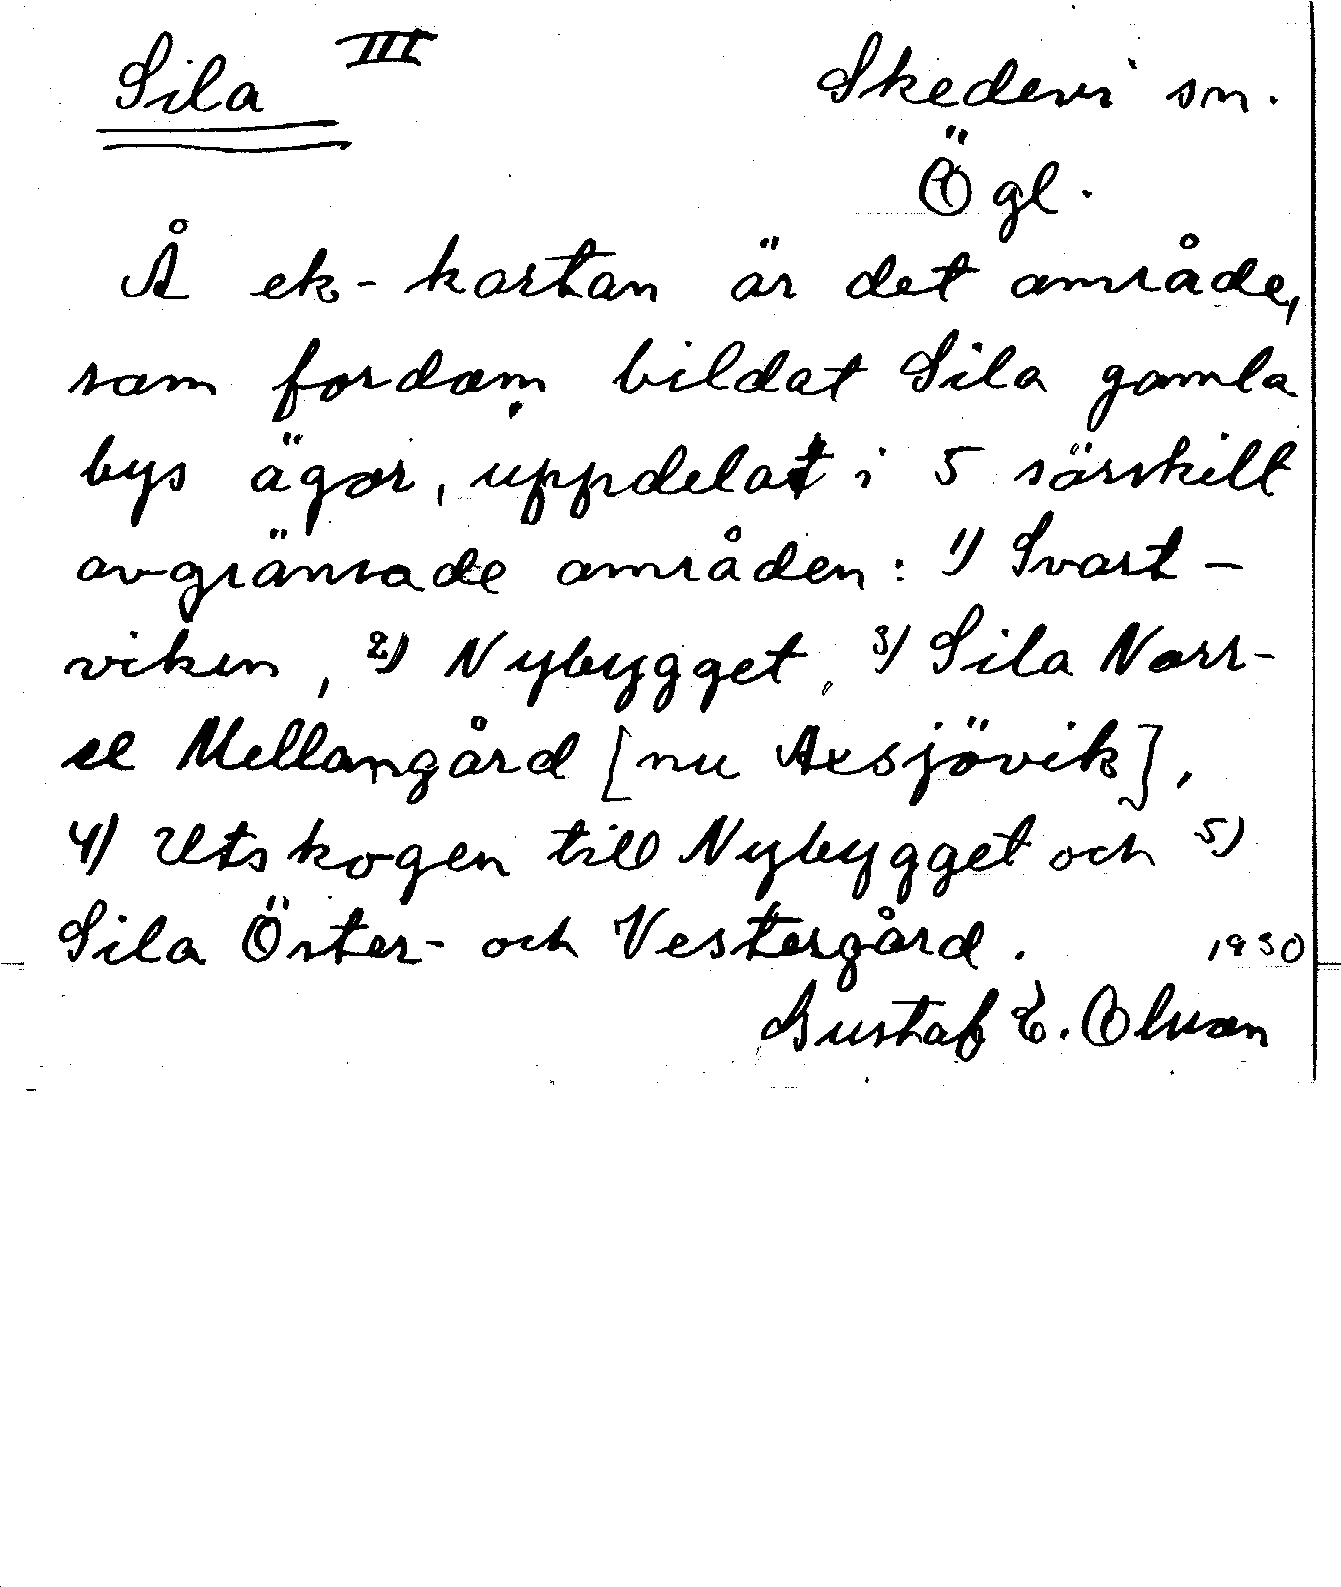 Sila III Skedevi sn.
Ögl.
Å ek-kartan är det område,
som fordom bildat Sila gamla
bys ägor, uppdelat i 5 särskilt
avgränsade områden: 1) Svart-
viken, 2) Nybygget, 3) Sila Norr-
el Mellangård [nu Axsjövik],
4) Utskogen till Nybygget och 5)
Sila Öster- och Vestergård. 1930
Gustaf E. Olsson